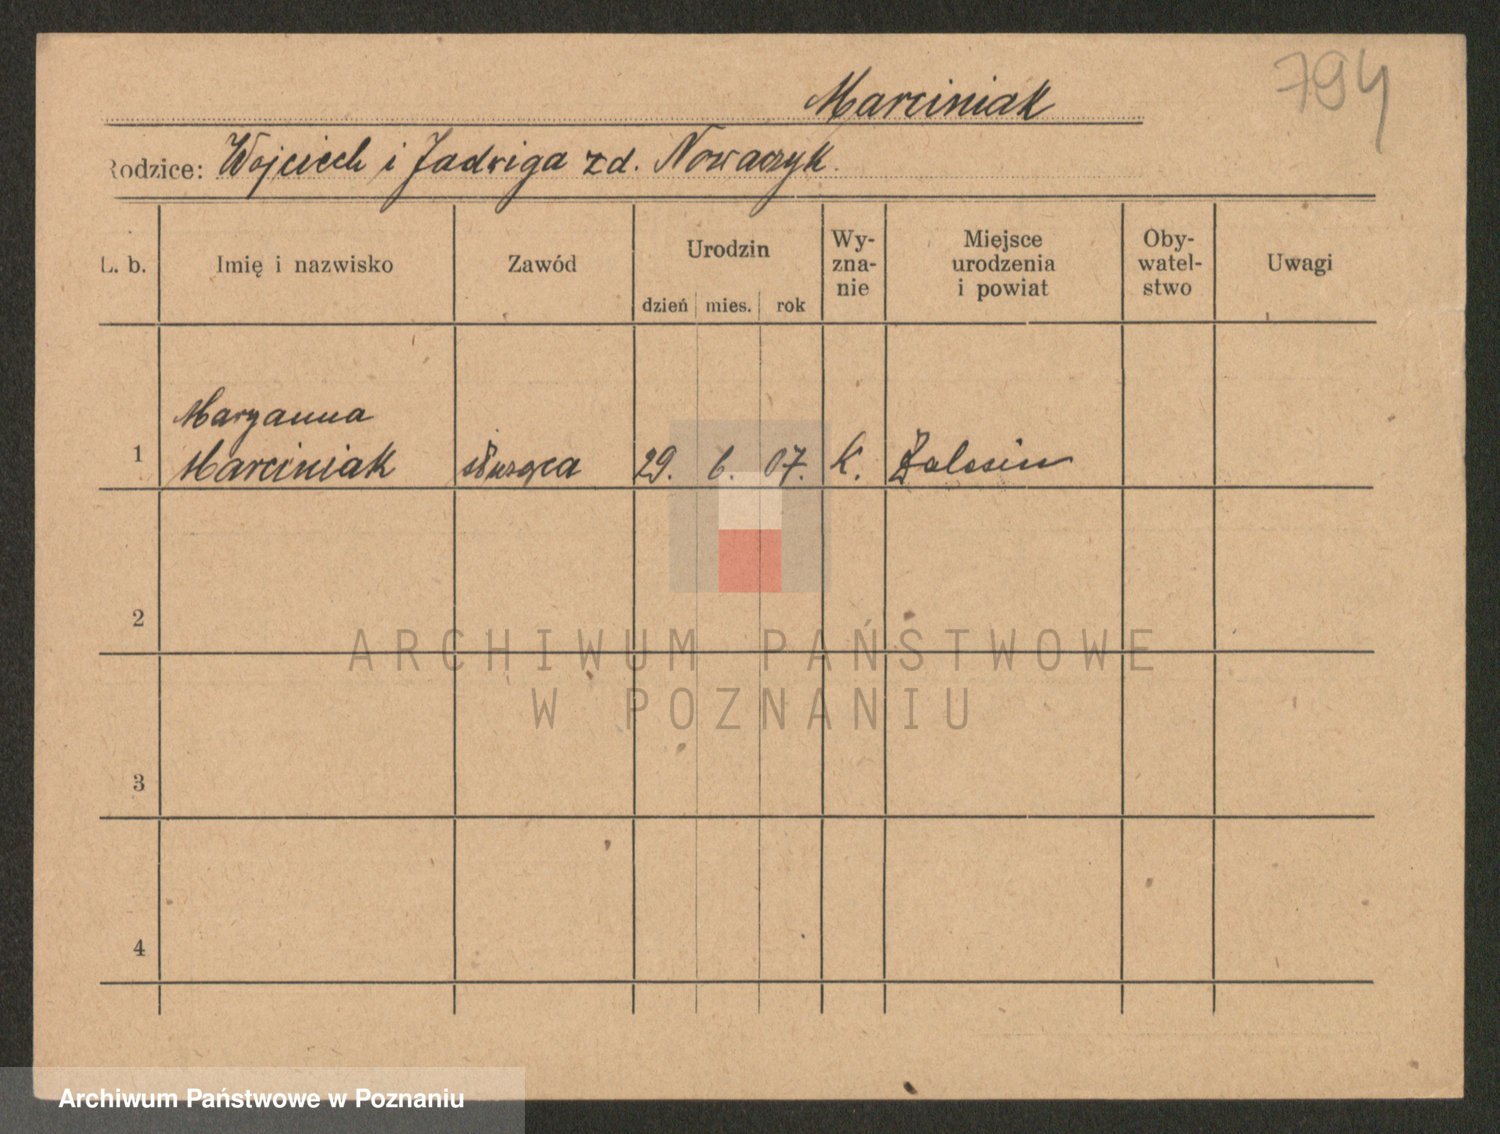 794
Marciniak
Rodzice: Wojciech i Jadwiga zd. Nowaczyk.
L. b. Imię i nazwisko Zawód Urodzin dzień mies. rok Wy-zna-nie Miejsce urodzenia i powiat Oby-watel-stwo Uwagi
Maryanna
1 Marciniak służąca 29. 6. 07. k. Zalesin
2
ARCHIWUM PAŃSTWOWE
W POZNANIU
3
4
Archiwum Państwowe w Poznaniu